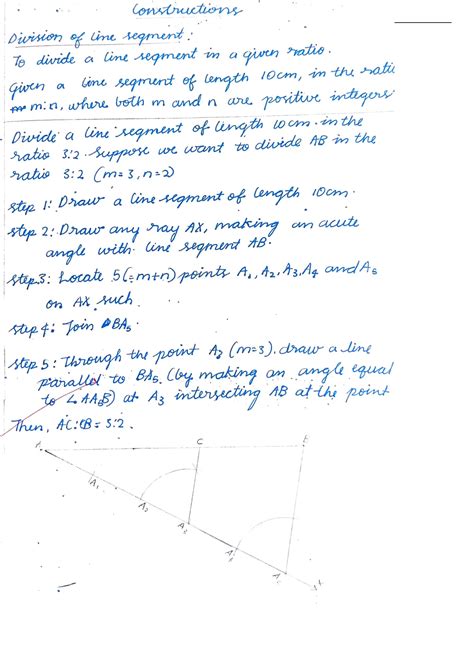 Constructions
Division of line segment:
To divide a line segment in a given ratio.
Given a line segment of length 10cm, in the ratio
m:n, where both m and n are positive integers
Divide a line segment of length 10cm in the
ratio 3:2. Suppose we want to divide AB in the
ratio 3:2 (m=3, n=2)
Step 1: Draw a line segment of length 10cm.
Step 2: Draw any ray AX, making an acute
angle with line segment AB.
Step 3: Locate 5(=m+n) points A₁, A₂, A₃, A₄ and A₅
on AX such.
Step 4: Join BA₅.
Step 5: Through the point A₃ (m=3). draw a line
parallel to BA₅ (by making an angle equal
to ∠AA₅B) at A₃ intersecting AB at the point
Then, AC:CB = 3:2.
A C B
A₁
A₂
A₃
A₄
A₅
X